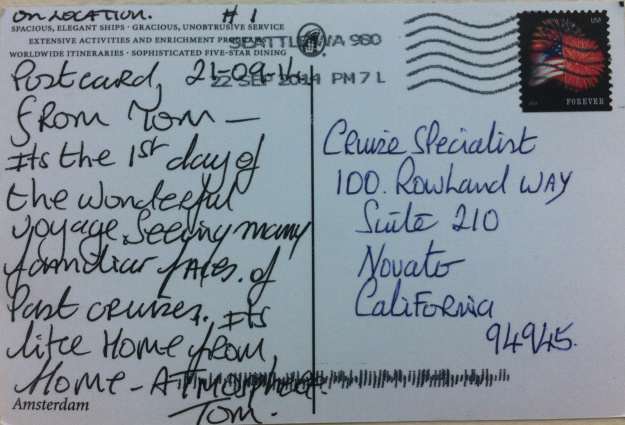 ON LOCATION. #1
SPACIOUS, ELEGANT SHIPS · GRACIOUS, UNOBTRUSIVE SERVICE
EXTENSIVE ACTIVITIES AND ENRICHMENT PROGRAMS
WORLDWIDE ITINERARIES · SOPHISTICATED FIVE-STAR DINING
SEATTLE WA 980
22 SEP 2014 PM 7 L
USA
FOREVER
Postcard, 21-09-14
FROM TOM —
Its the 1st day of
the wonderful
voyage. Seeing many
familiar faces. of
Past cruises. Its
like Home from
Home - ATmosphere.
TOM.
Amsterdam
Cruise Specialist
100. Rowland WAY
Suite 210
Novato
California
94945.